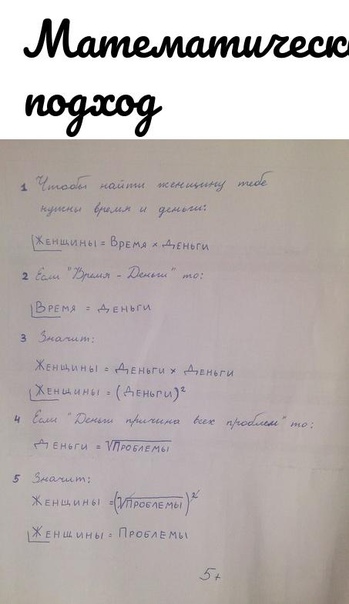 Математически
подход
1 Чтобы найти женщину тебе
нужны время и деньги:
Женщины = Время × Деньги
2 Если "Время - Деньги" то:
Время = Деньги
3 Значит:
Женщины = Деньги × Деньги
Женщины = (Деньги)²
4 Если "Деньги причина всех проблем" то:
Деньги = √Проблемы
5 Значит:
Женщины = (√Проблемы)²
Женщины = Проблемы
5+